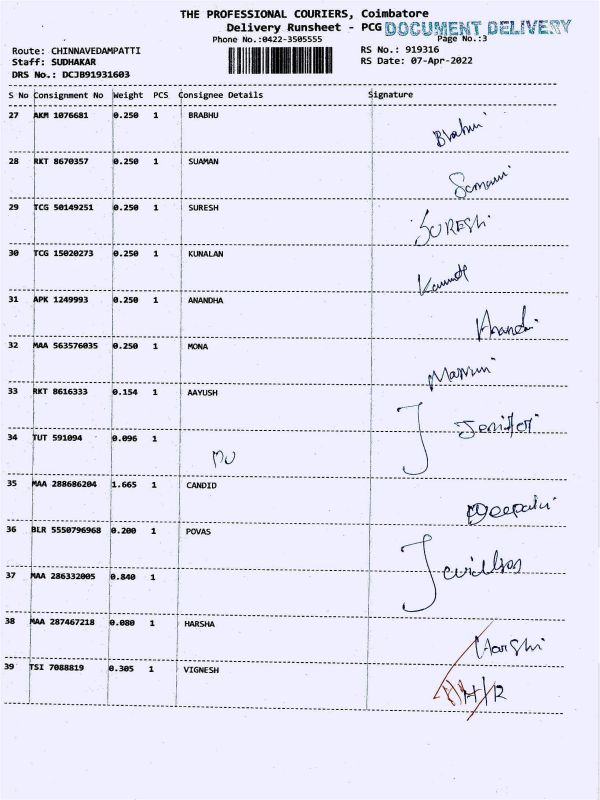 THE PROFESSIONAL COURIERS, Coimbatore
Delivery Runsheet - PCG DOCUMENT DELIVERY
Phone No.:0422-3505555 Page No.:3
Route: CHINNAVEDAMPATTI RS No.: 919316
Staff: SUDHAKAR RS Date: 07-Apr-2022
DRS No.: DCJB91931603
S No Consignment No Weight PCS Consignee Details Signature
27 AKM 1076681 0.250 1 BRABHU
28 RKT 8670357 0.250 1 SUAMAN
29 TCG 50149251 0.250 1 SURESH SURESH
30 TCG 15020273 0.250 1 KUNALAN
31 APK 1249993 0.250 1 ANANDHA
32 MAA 563576035 0.250 1 MONA
33 RKT 8616333 0.154 1 AAYUSH
34 TUT 591094 0.096 1
35 MAA 288686204 1.665 1 CANDID
36 BLR 5550796968 0.200 1 POVAS
37 MAA 286332005 0.840 1
38 MAA 287467218 0.080 1 HARSHA
39 TSI 7088819 0.305 1 VIGNESH